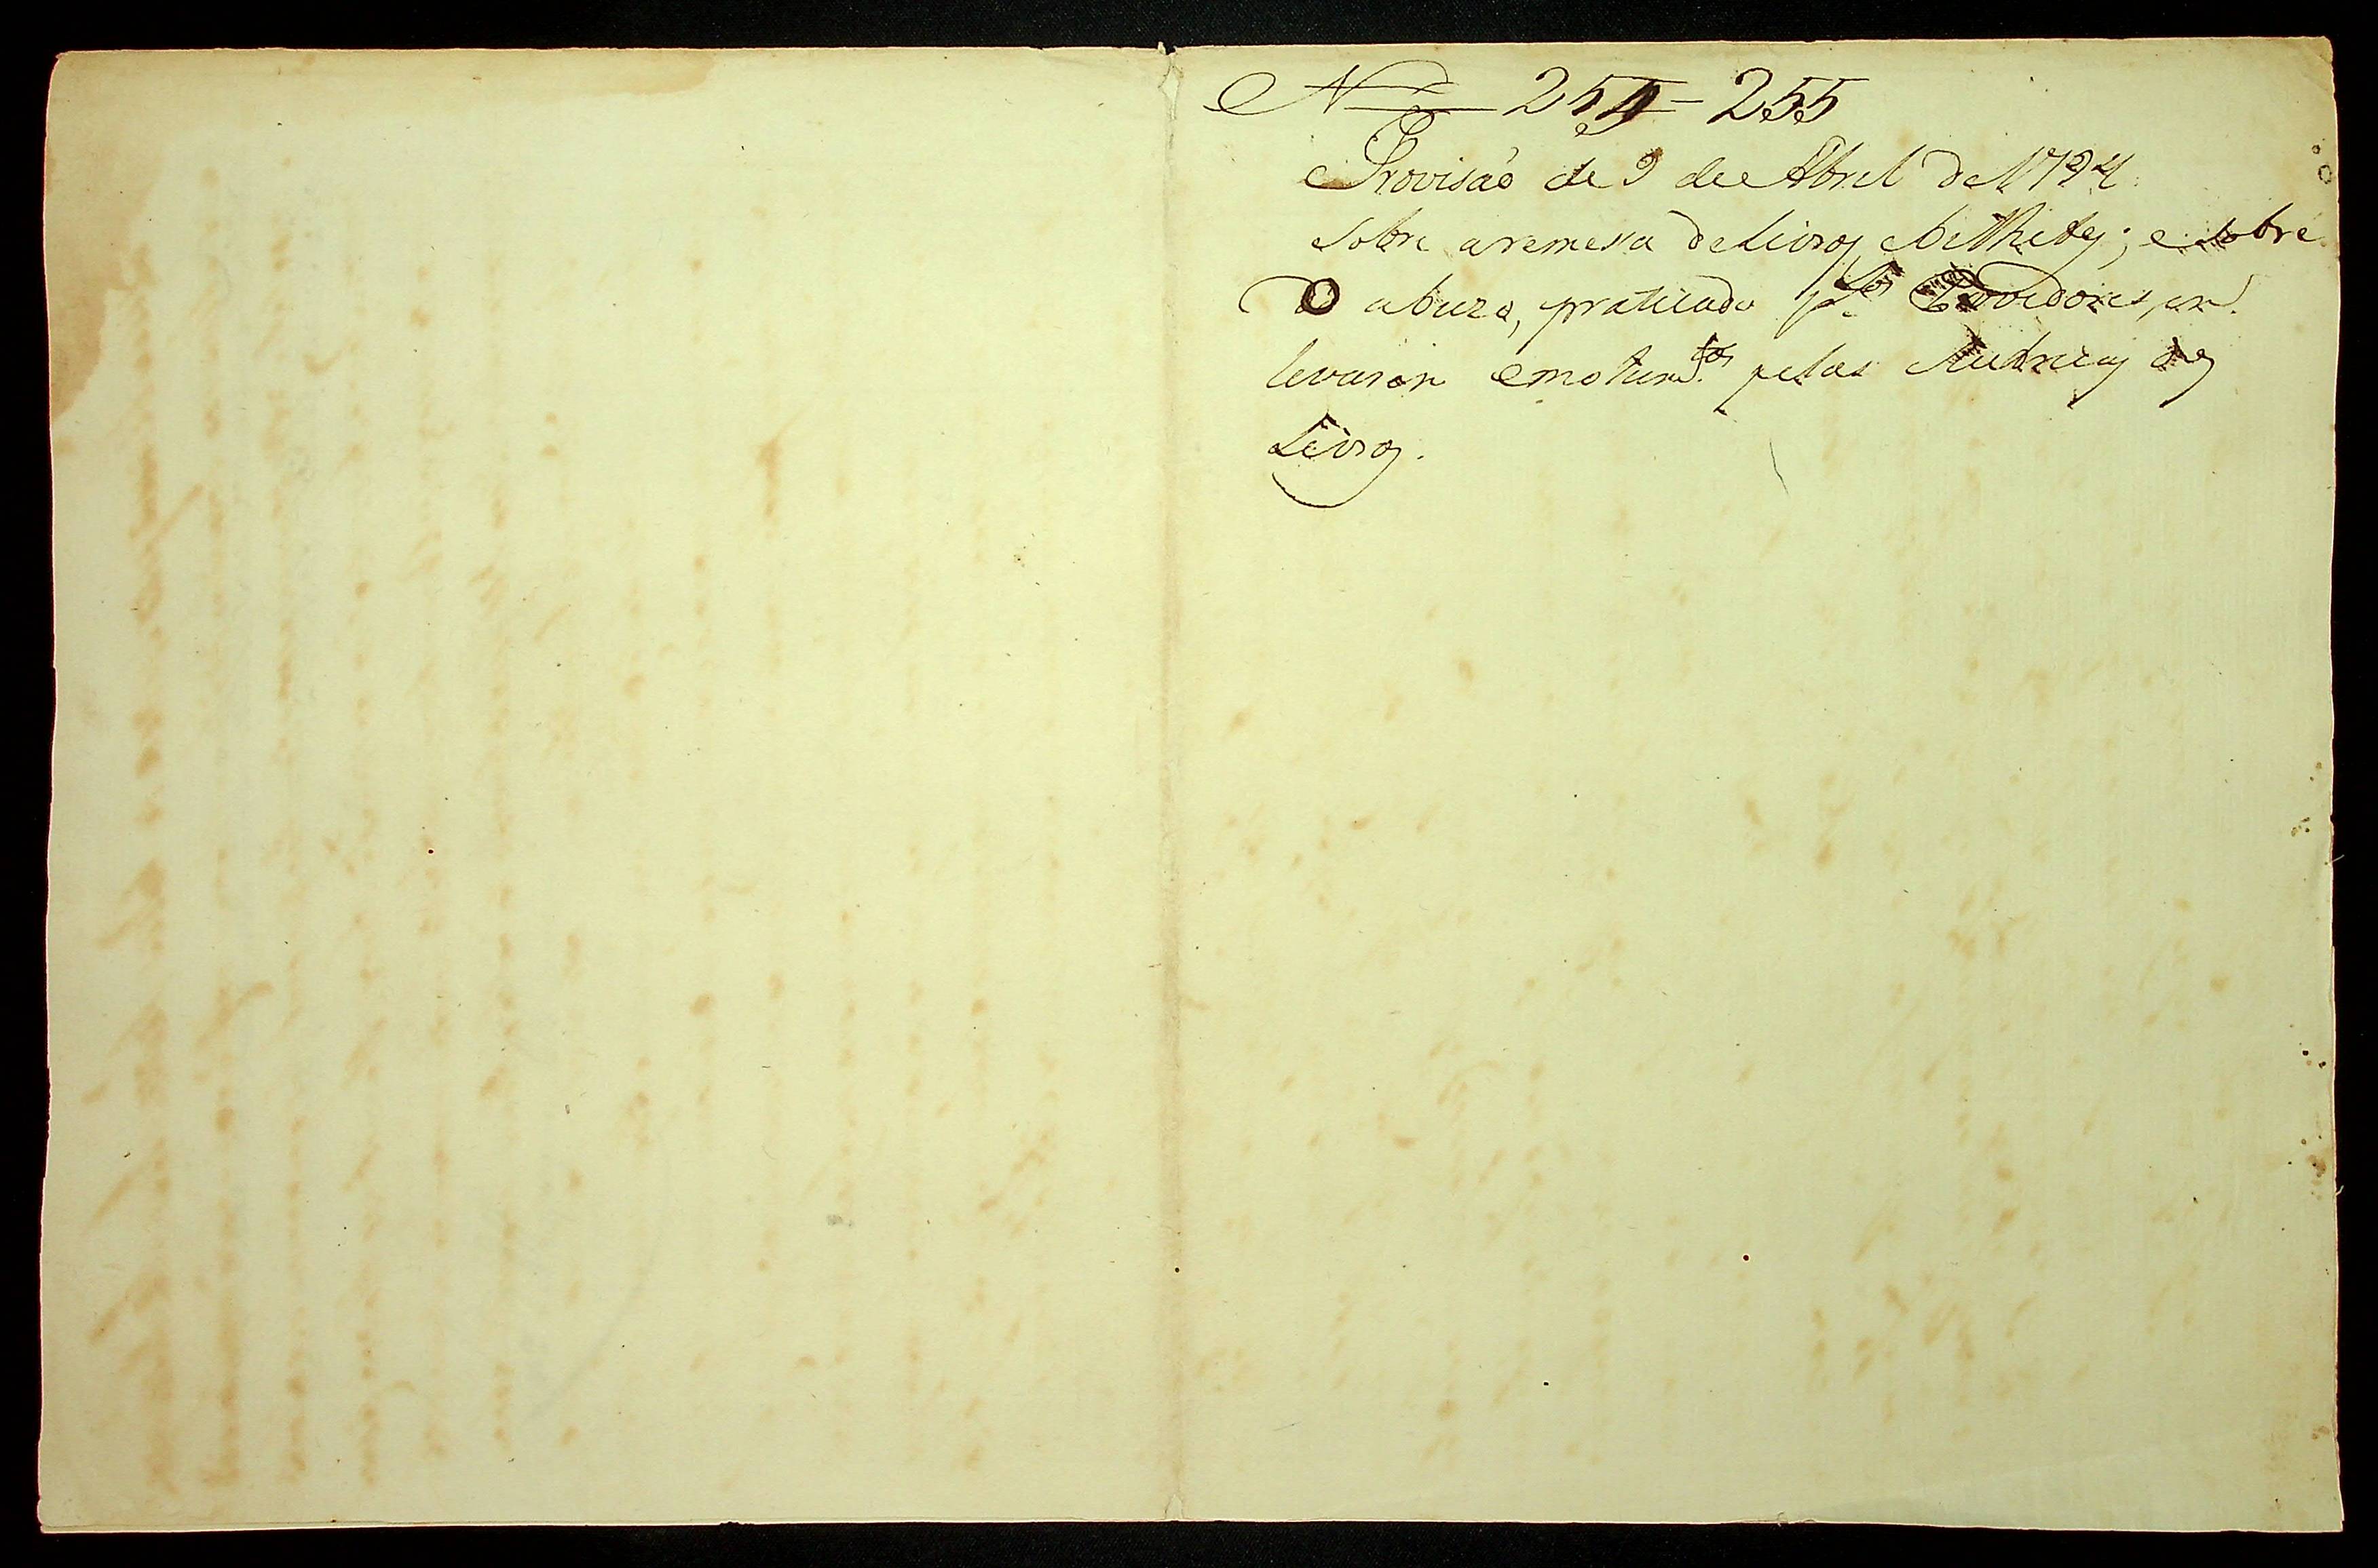 N 254-255
Provisaõ de 9 de Abril de 1794
sobre aremessa de Livros, e bilhetes; e sobre
O abuzo, praticado p.los Provedores, em
levarem emolum.tos pelas Rubricas dos
Livros.